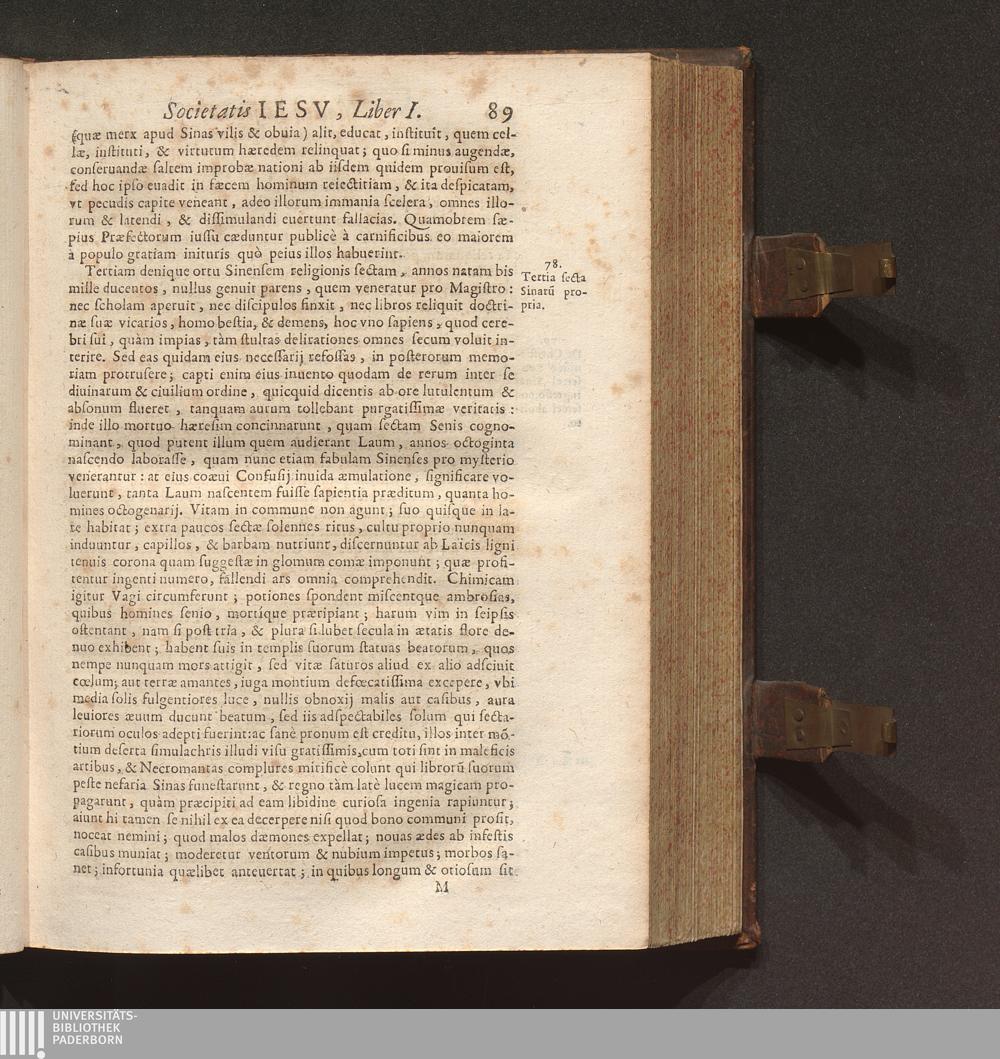 Societatis IESV, Liber I. 89
(quæ merx apud Sinas vilis & obuia) alit, educat, inſtituit, quem cel-
læ, inſtituti, & virtutum hæredem relinquat; quo ſi minus augendæ,
conſeruandæ ſaltem improbæ nationi ab iiſdem quidem prouiſum eſt,
ſed hoc ipſo euadit in fæcem hominum reiectitiam, & ita deſpicatam,
vt pecudis capite veneant, adeo illorum immania ſcelera, omnes illo-
rum & latendi, & diſſimulandi euertunt fallacias. Quamobrem ſæ-
pius Præfectorum iuſſu cæduntur publicè à carnificibus eo maiorem
à populo gratiam inituris quò peius illos habuerint.
Tertiam denique ortu Sinenſem religionis ſectam, annos natam bis
mille ducentos, nullus genuit parens, quem veneratur pro Magiſtro:
nec ſcholam aperuit, nec diſcipulos finxit, nec libros reliquit doctri-
næ ſuæ vicarios, homo beſtia, & demens, hoc vno ſapiens, quod cere-
bri ſui, quàm impias, tàm ſtultas delirationes omnes ſecum voluit in-
terire. Sed eas quidam eius neceſſarij refoſſas, in poſterorum memo-
riam protruſere; capti enim eius inuento quodam de rerum inter ſe
diuinarum & ciuilium ordine, quicquid dicentis ab ore lutulentum &
abſonum flueret, tanquam aurum tollebant purgatiſſimæ veritatis:
inde illo mortuo hæreſim concinnarunt, quam ſectam Senis cogno-
minant, quod putent illum quem audierant Laum, annos octoginta
naſcendo laboraſſe, quam nunc etiam fabulam Sinenſes pro myſterio
venerantur: at eius coæui Confuſij inuida æmulatione, ſignificare vo-
luerunt, tanta Laum naſcentem fuiſſe ſapientia præditum, quanta ho-
mines octogenarij. Vitam in commune non agunt; ſuo quiſque in la-
re habitat; extra paucos ſectæ ſolennes ritus, cultu proprio nunquam
induuntur, capillos, & barbam nutriunt, diſcernuntur ab Laicis ligni
tenuis corona quam ſuggeſtæ in glomum comæ imponunt; quæ profi-
tentur ingenti numero, fallendi ars omnia comprehendit. Chimicam
igitur Vagi circumferunt; potiones ſpondent miſcentque ambroſias,
quibus homines ſenio, mortíque præripiant; harum vim in ſeipſis
oſtentant, nam ſi poſt tria, & plura ſi lubet ſecula in ætatis flore de-
nuo exhibent; habent ſuis in templis ſuorum ſtatuas beatorum, quos
nempe nunquam mors attigit, ſed vitæ ſaturos aliud ex alio adſciuit
cœlum; aut terræ amantes, iuga montium defœcatiſſima excepere, vbi
media ſolis fulgentiores luce, nullis obnoxij malis aut caſibus, aura
leuiores æuum ducunt beatum, ſed iis adſpectabiles ſolum qui ſecta-
riorum oculos adepti fuerint: ac ſanè pronum eſt creditu, illos inter mō-
tium deſerta ſimulachris illudi viſu gratiſſimis, cum toti ſint in maleficis
artibus, & Necromantas complures mirificè colunt qui librorū ſuorum
peſte nefaria Sinas funeſtarunt, & regno tàm latè lucem magicam pro-
pagarunt, quàm præcipiti ad eam libidine curioſa ingenia rapiuntur;
aiunt hi tamen ſe nihil ex ea decerpere niſi quod bono communi proſit,
noceat nemini; quod malos dæmones expellat; nouas ædes ab infeſtis
caſibus muniat; moderetur ventorum & nubium impetus; morbos ſa-
net; infortunia quælibet anteuertat; in quibus longum & otioſum ſit
M
78.
Tertia ſecta
Sinarū pro-
pria.
UNIVERSITÄTS-
BIBLIOTHEK
PADERBORN